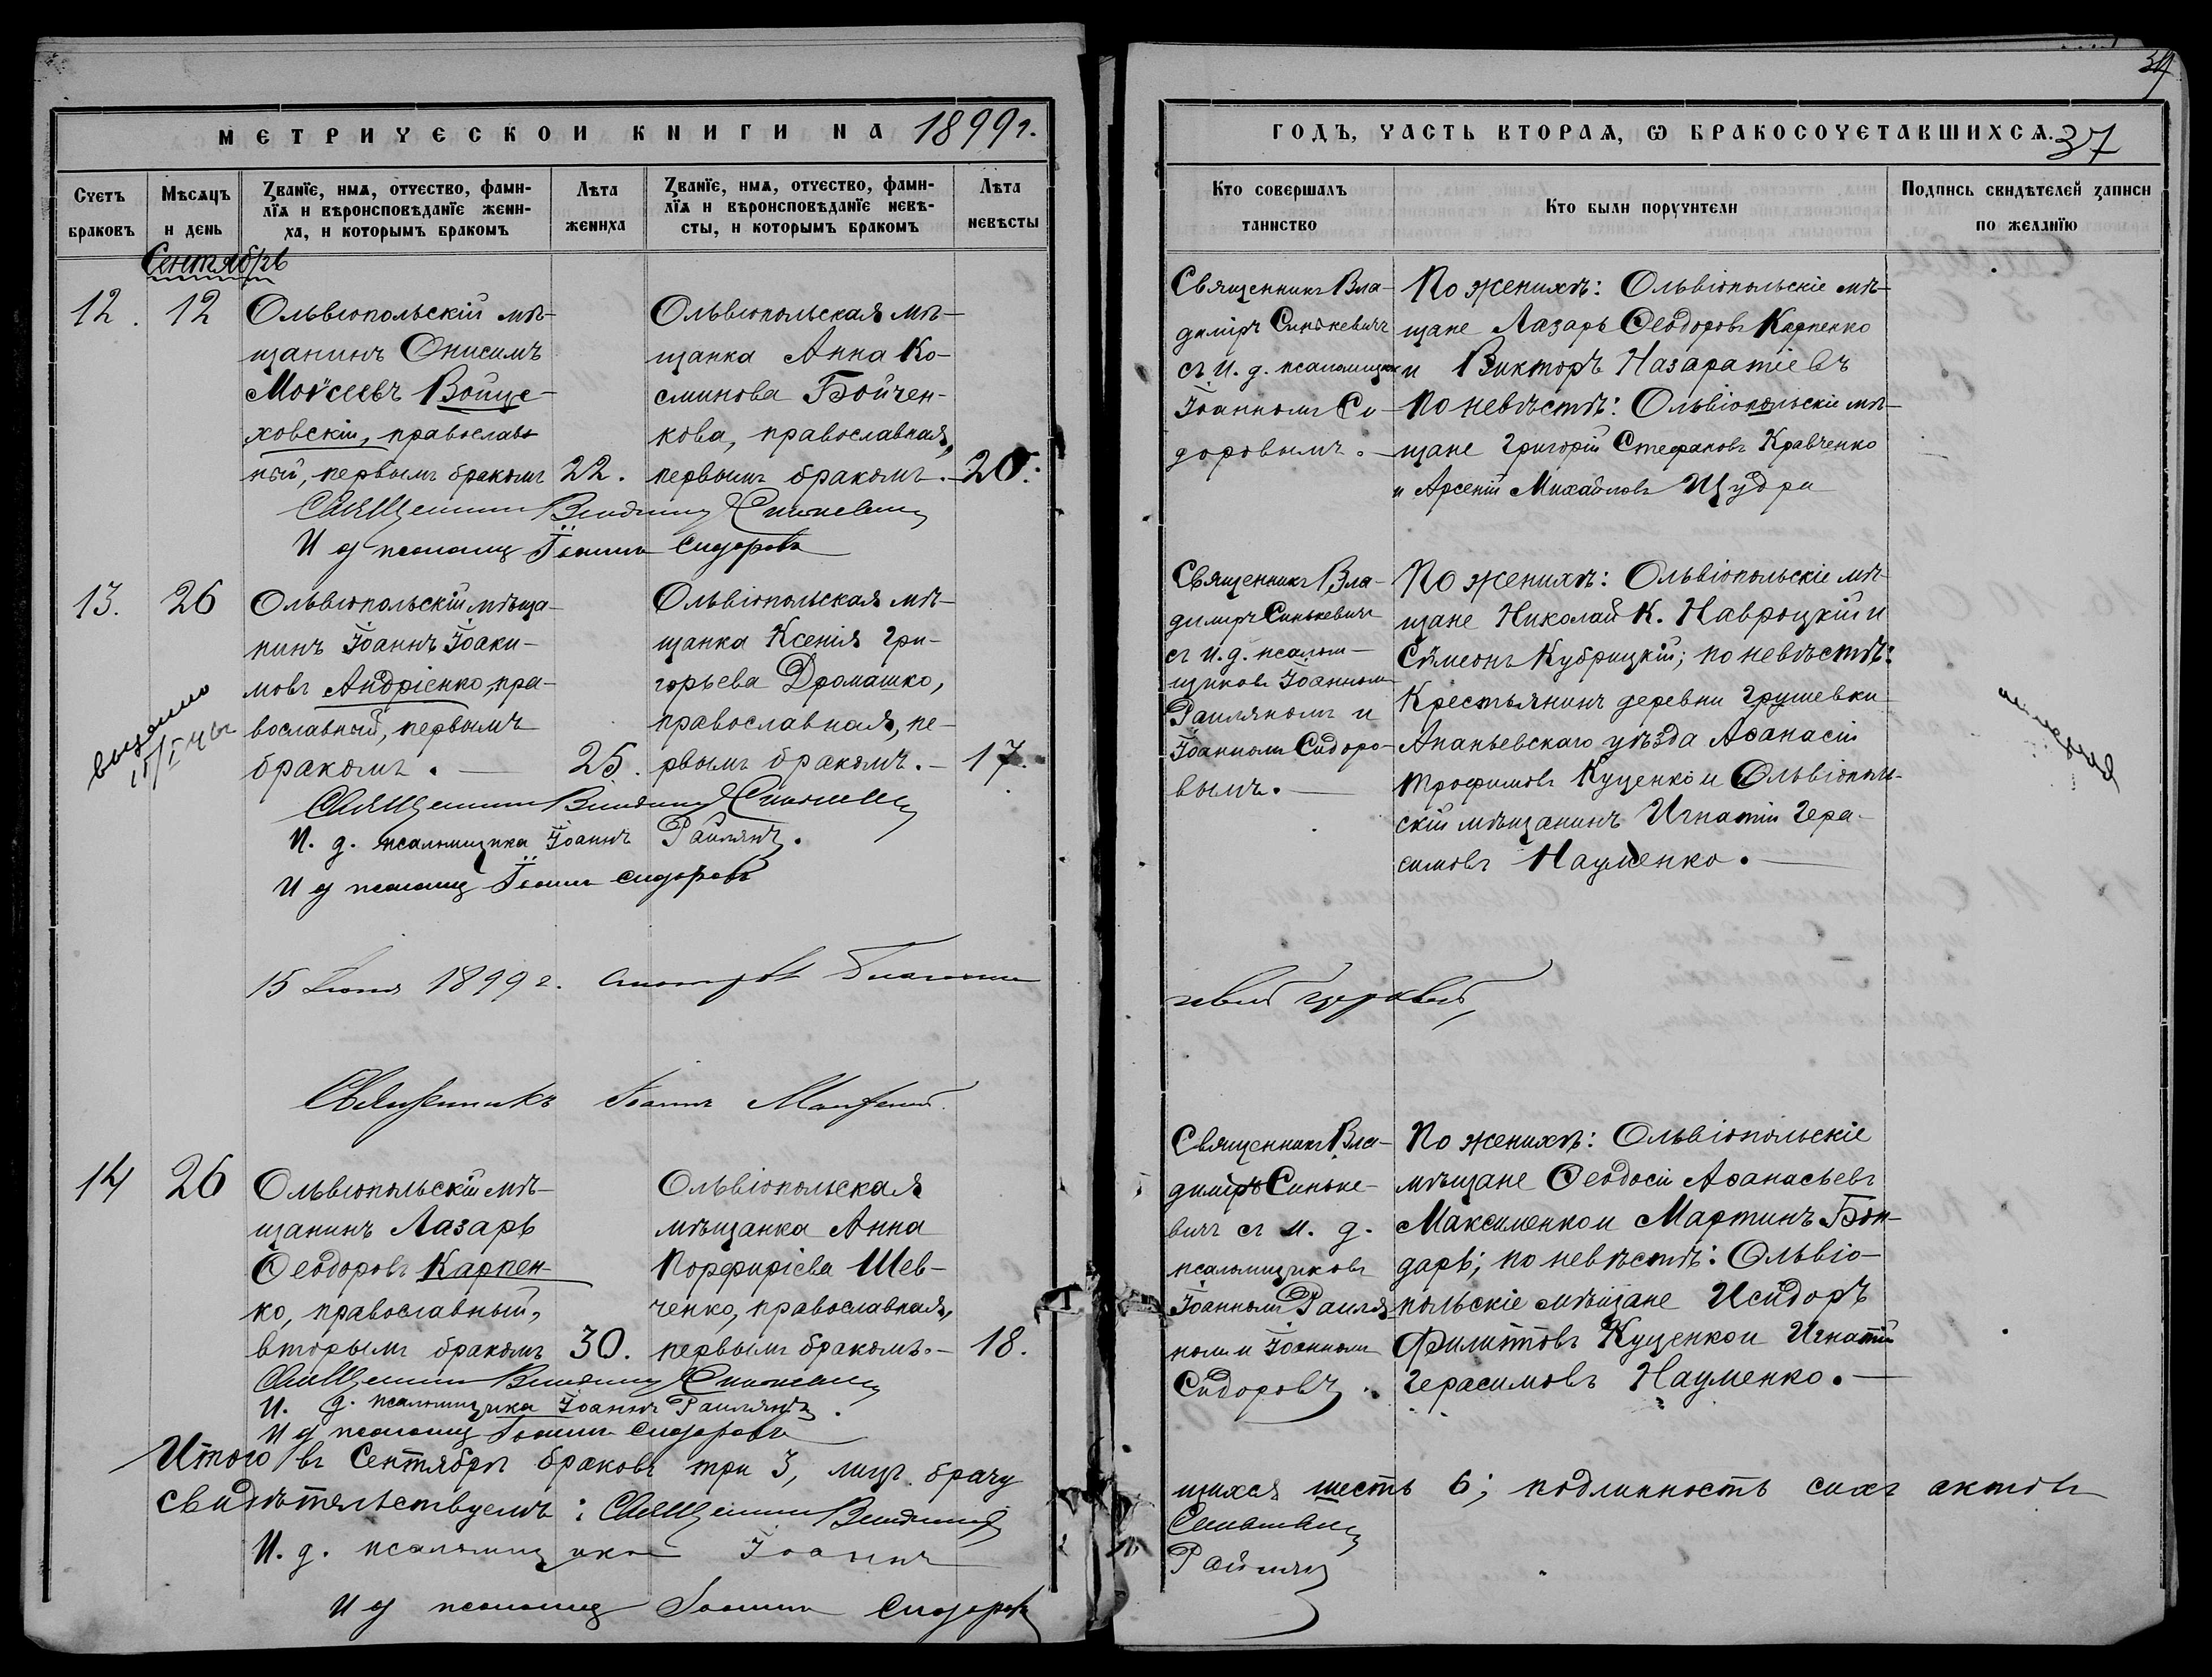 МЕТРИЧЕСКОЙ КНИГИ НА 1899 г.
Счетъ браковъ
Мѣсяцъ и день
Званїе, имя, отчество, фамилїя и вѣроисповѣданїе жениха, и которымъ бракомъ
Лѣта жениха
Званїе, имя, отчество, фамилїя и вѣроисповѣданїе невѣсты, и которымъ бракомъ
Лѣта невѣсты
Сентябрь
12. 12
Ольвіопольскій мѣ-
щанинъ Онисимъ
Моѵсеевъ Войце-
ховскій, православ
ный, первымъ бракомъ
22.
Ольвіопольская мѣ-
щанка Анна Ко-
сминова Бойчен-
кова, православная,
первымъ бракомъ.
20.
Священникъ Владиміръ Синькевичъ
И д псаломщ Іоаннъ Сидоровъ
13. 26
Ольвіопольскій мѣща-
нинъ Іоаннъ Іоаки-
мовъ Андріенко, пра-
вославный, первымъ
бракомъ.
25.
Ольвіопольская мѣ-
щанка Ксенія Гри-
горьева Дромашко,
православная, пе-
рвымъ бракомъ.
17.
Священникъ Владиміръ Синькевичъ
И. д. псаломщика Іоаннъ Райлянъ.
И д псаломщ Іоаннъ Сидоровъ
15 1899 г.
Священникъ Іоаннъ
14 26
Ольвіопольскій мѣ-
щанинъ Лазарь
Ѳеодоровъ Карпен-
ко, православный,
вторымъ бракомъ
30.
Ольвіопольская
мѣщанка Анна
Порфиріева Шев-
ченко, православная,
первымъ бракомъ.
18.
Священникъ Владиміръ Синькевичъ
И. д. псаломщика Іоаннъ Райлянъ.
И д псаломщ Іоаннъ Сидоровъ
Итого въ Сентябрѣ браковъ три 3, лицъ брачу
свидѣтельствуемъ: Священникъ Владиміръ
И. д. псаломщика Іоаннъ
И д псаломщ Іоаннъ Сидоровъ
ГОДЪ, ЧАСТЬ ВТОРАЯ, Ѡ БРАКОСОЧЕТАВШИХСЯ. 37
Кто совершалъ таинство
Кто были поручители
Подпись свидѣтелей записи по желанїю
Священникъ Вла-
диміръ Синькевичъ
съ и. д. псаломщика
Іоанномъ Си-
доровымъ.
По женихѣ: Ольвіопольскіе мѣ-
щане Лазарь Ѳеодоровъ Карпенко
и Викторъ Назаратіевъ
По невѣстѣ: Ольвіопольскіе мѣ-
щане Григорій Стефановъ Кравченко
и Арсеній Михайловъ Щудра
Священникъ Вла-
диміръ Синькевичъ
съ и. д. псалом-
щиковъ Іоанномъ
Раиляномъ и
Іоанномъ Сидоро-
вымъ.
По женихѣ: Ольвіопольскіе мѣ-
щане Николай К. Навроцкій и
Сѵмеонъ Кубрицкій; по невѣстѣ:
Крестьянинъ деревни Грушевки
Ананьевскаго уѣзда Аѳанасій
Трофимовъ Куценко и Ольвіополь-
скій мѣщанинъ Игнатій Гера-
симовъ Науменко.
Священникъ Вла-
диміръ Синьке-
вичъ съ и. д.
псаломщиковъ
Іоанномъ Раиля-
номъ и Іоанномъ
Сидоровъ.
По женихѣ: Ольвіопольскіе
мѣщане Ѳеодосій Аѳанасьевъ
Максименко и Мартинъ Бон-
дарь; по невѣстѣ: Ольвіо-
польскіе мѣщане Исидоръ
Филиповъ Куценко и Игнатій
Герасимовъ Науменко.
щихся шесть 6; подлинность сихъ актовъ
Синькевичъ
Райлянъ